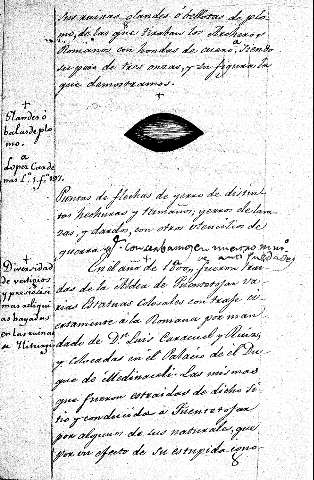 sus ruinas glandes ó bellotas de plo-
mo, de las qᵉ tiraban los Archeros
Romanos con hondas de cuero. Siendo
su peso de tres onzas, y su figura la
que demostramos.
+
Glandes ó
balas de plo
mo.
a
Lopez Carde
nas
Puntas de flechas de yerro de distin-
tos hechuras y tamaños; yerros de lan-
zas, y dardos, con otros utencilios de
guerra qᵉ conserbamos en nuestro
+
Diversidad
de vestigios
y preciosi-
mas antigu
as
en las ruinas
de Yliturgis
En el año de fueron
das de la Aldea de Fuentetojar va-
rias Estatuas Colosales con trage
ertamente á la Romana por man
dado de Dⁿ Luis Caracuel y Ruiz,
y colocadas en el Palacio de el Du
que de Medinaceli. Las mismas
que fueron estraidas de dicho Si
tio y conducidas á Fuentetojar
por algunos de sus naturales, que
por un efecto de su estupida igno-